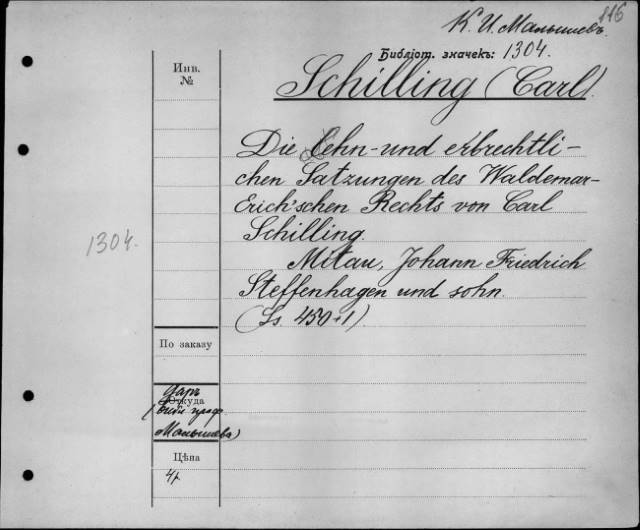 116
К. И. Малышевъ.
Библіот. значекъ: 1304.
Инв.
№
Schilling (Carl).
Die Lehn- und erbrechtli-
chen Satzungen des Waldemar-
Erich'schen Rechts von Carl
Schilling.
1304.
Mitau, Johann Friedrich
Steffenhagen und sohn.
(Ss. 450+1)
По заказу
Откуда
даръ
проф.
Малышева)
Цѣна
4р